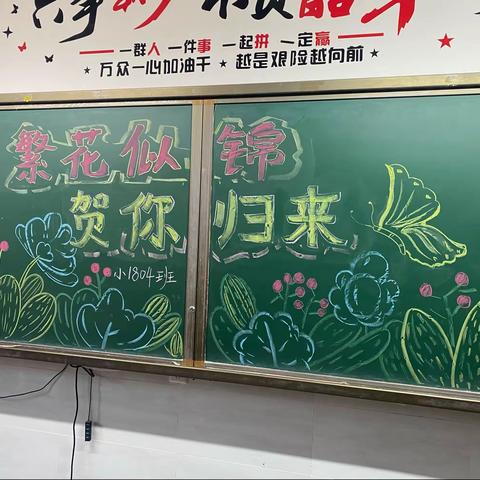 一群人 一件事 一起拼 一定赢
万众一心加油干 越是艰险越向前
繁花似锦
贺你归来
小1804班